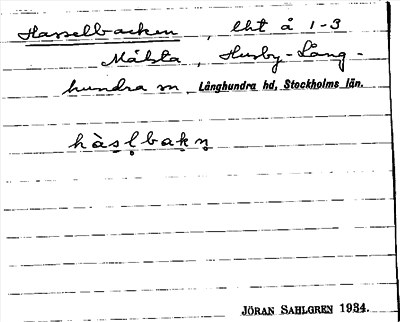 Hasselbacken, lht å 1-3
Målsta, Husby-Lång-
hundra sn Långhundra hd, Stockholms län.
hàsl̥bakn̥
JÖRAN SAHLGREN 1934.